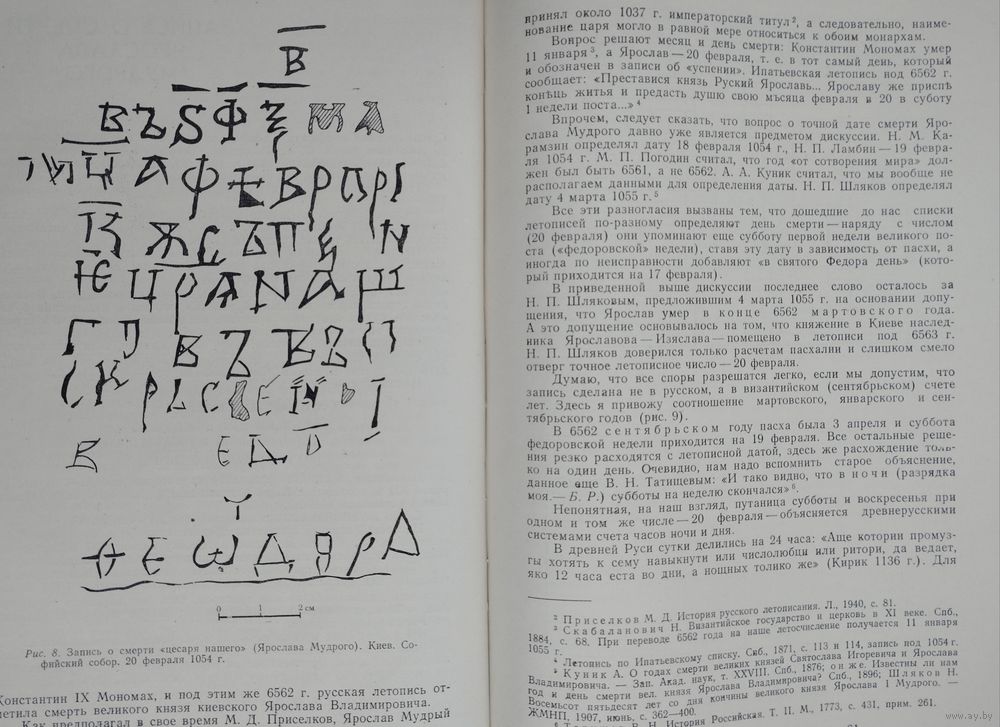 Рис. 8. Запись о смерти «цесаря нашего» (Ярослава Мудрого). Киев. Со-
фийский собор. 20 февраля 1054 г.
Константин IX Мономах, и под этим же 6562 г. русская летопись от-
метила смерть великого князя киевского Ярослава Владимировича.
Как предполагал в свое время М. Д. Приселков, Ярослав Мудрый
0 1 2 см
принял около 1037 г. императорский титул², а следовательно, наиме-
нование царя могло в равной мере относиться к обоим монархам.
Вопрос решают месяц и день смерти: Константин Мономах умер
11 января³, а Ярослав — 20 февраля, т. е. в тот самый день, который
и обозначен в записи об «успении». Ипатьевская летопись под 6562 г.
сообщает: «Преставися князь Руский Ярославь... Ярославу же приспѣ
конѣць житья и предасть душю свою мѣсяца февраля в 20 в суботу
1 недели поста...»⁴
Впрочем, следует сказать, что вопрос о точной дате смерти Яро-
слава Мудрого давно уже является предметом дискуссии. Н. М. Ка-
рамзин определял дату 18 февраля 1054 г., Н. П. Ламбин — 19 февра-
ля 1054 г. М. П. Погодин считал, что год «от сотворения мира» дол-
жен был быть 6561, а не 6562. А. А. Куник считал, что мы вообще не
располагаем данными для определения даты. Н. П. Шляков определял
дату 4 марта 1055 г.⁵
Все эти разногласия вызваны тем, что дошедшие до нас списки
летописей по-разному определяют день смерти — наряду с числом
(20 февраля) они упоминают еще субботу первой недели великого по-
ста («федоровской» недели), ставя эту дату в зависимость от пасхи, а
иногда по неисправности добавляют «в святого Федора день» (кото-
рый приходится на 17 февраля).
В приведенной выше дискуссии последнее слово осталось за
Н. П. Шляковым, предложившим 4 марта 1055 г. на основании допу-
щения, что Ярослав умер в конце 6562 мартовского года.
А это допущение основывалось на том, что княжение в Киеве наслед-
ника Ярославова — Изяслава — помещено в летописи под 6563 г.
Н. П. Шляков доверился только расчетам пасхалии и слишком смело
отверг точное летописное число — 20 февраля.
Думаю, что все споры разрешатся легко, если мы допустим, что
запись сделана не в русском, а в византийском (сентябрьском) счете
лет. Здесь я привожу соотношение мартовского, январского и сен-
тябрьского годов (рис. 9).
В 6562 сентябрьском году пасха была 3 апреля и суббота
федоровской недели приходится на 19 февраля. Все остальные реше-
ния резко расходятся с летописной датой, здесь же расхождение толь-
ко на один день. Очевидно, нам надо вспомнить старое объяснение,
данное еще В. Н. Татищевым: «И тако видно, что в ночи (разрядка
моя.— Б. Р.) субботы на неделю скончался»⁶.
Непонятная, на наш взгляд, путаница субботы и воскресенья при
одном и том же числе — 20 февраля — объясняется древнерусскими
системами счета часов ночи и дня.
В древней Руси сутки делились на 24 часа: «Аще котории промуз-
гы хотять к сему навыкнути или числолюбци или ритори, да ведает,
яко 12 часа еста во дни, а нощных толико же» (Кирик 1136 г.). Для
² Приселков М. Д. История русского летописания. Л., 1940, с. 81.
³ Скабаланович Н. Византийское государство и церковь в XI веке. Спб.,
1884, с. 68. При переводе 6562 года на наше летосчисление получается 11 января
1055 г.
⁴ Летопись по Ипатьевскому списку. Спб., 1871, с. 113 и 114, запись под 1054 г.
⁵ Куник А. О годах смерти великих князей Святослава Игоревича и Ярослава
Владимировича. — Зап. Акад. наук, т. XXVIII. Спб., 1876; он же. Известны ли нам
год и день смерти вел. князя Ярослава Владимировича? Спб., 1896; Шляков Н.
Восемьсот пятьдесят лет со дня кончины великого князя Ярослава I Мудрого. —
ЖМНП, 1907, июнь, с. 362—400.
В. Н. История Российская. Т. II. М., 1773, с. 431, прим. 261.
www.ay.by